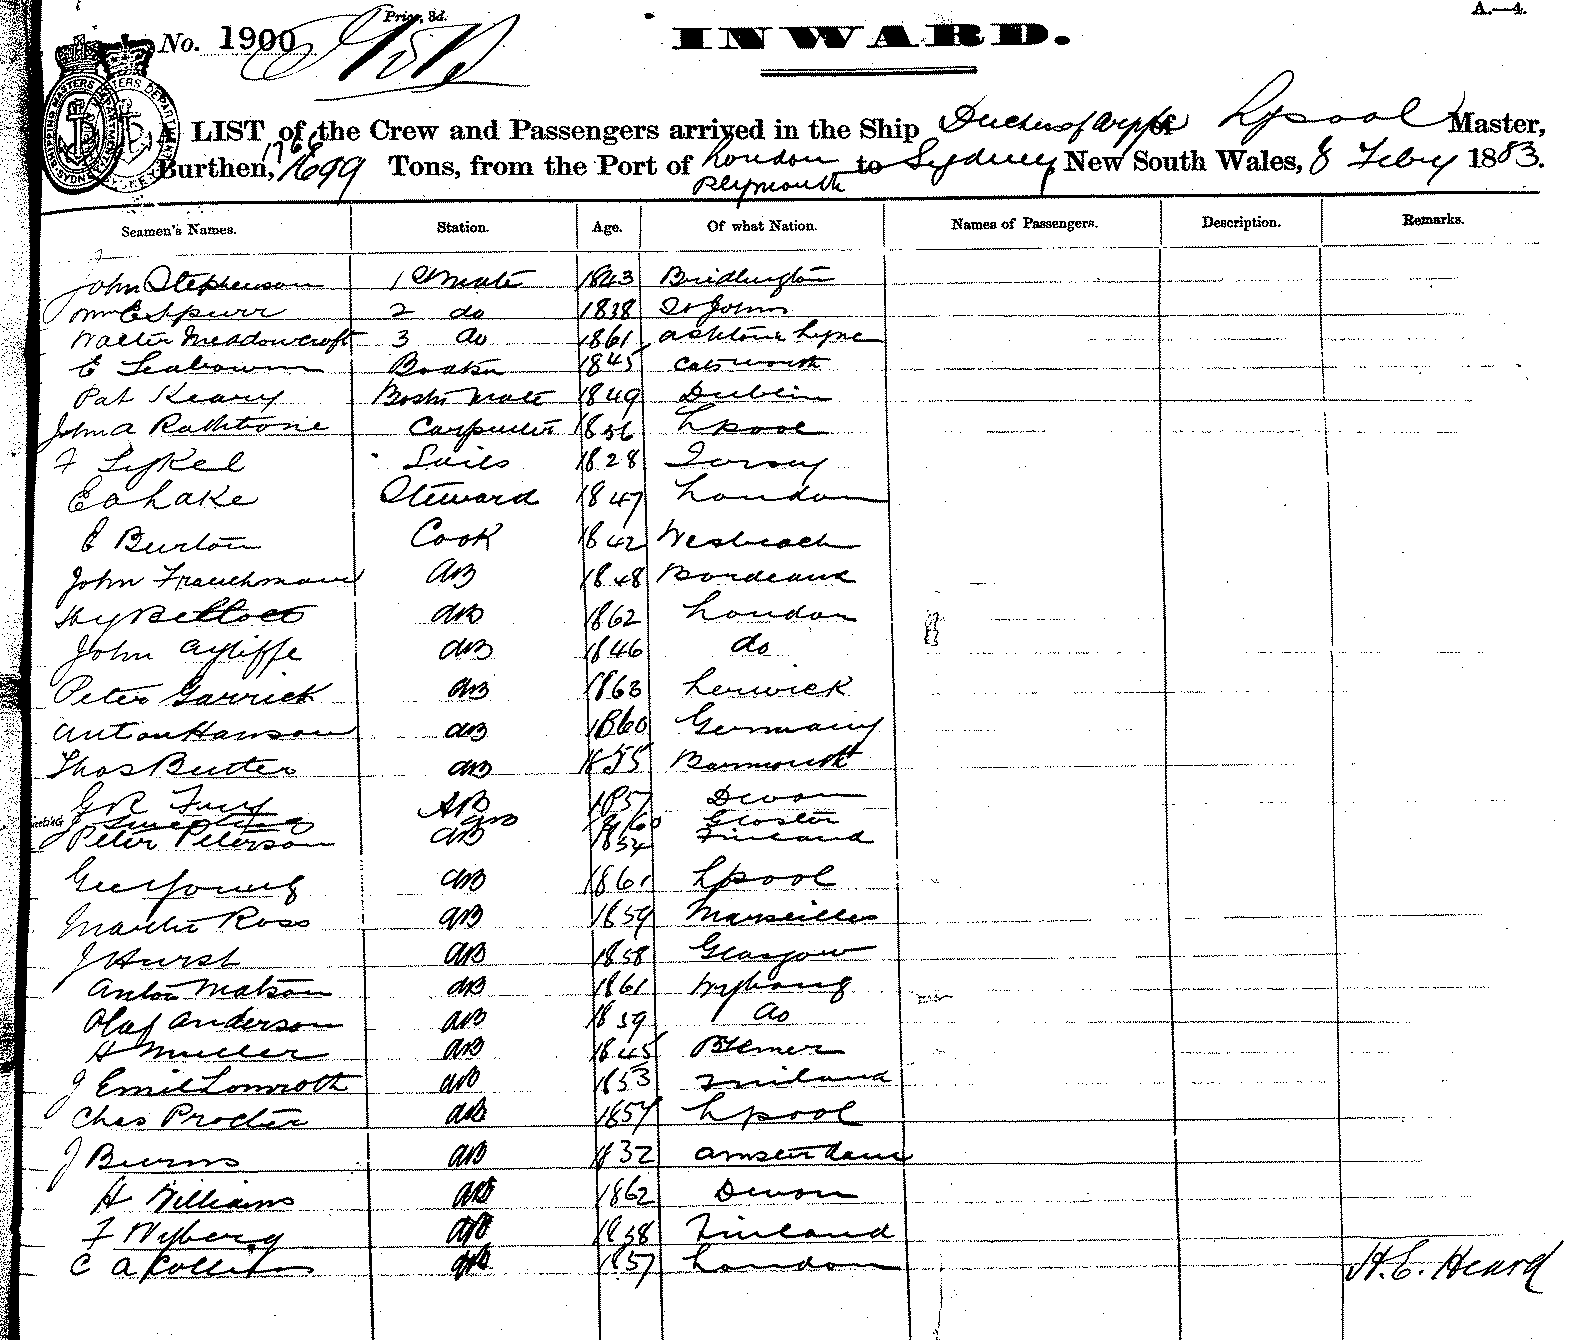 A.—4.
Price, 3d.
No. 1900
INWARD.
A LIST of the Crew and Passengers arrived in the Ship Duchess of Argyle of Lpool Master,
Burthen, 1768 1699 Tons, from the Port of London Plymouth to Sydney New South Wales, 8 Feby 1883.
Seamen's Names. Station. Age. Of what Nation. Names of Passengers. Description. Remarks.
John Stephenson 1st mate 1843 Bridlington
Wm E Spurr 2 do 1838 St Johns
Walter Meadowcroft 3 do 1861 Ashton Lyne
E Seaborn Boatsn 1845
Pat Keary Bostn Mate 1849 Dublin
John A Rathbone Carpenter 1856 Lpool
F Sykel Sails 1828 Jersey
E A Lake Steward 1847 London
E Burton Cook 1842 Wesbeach
John Frauchmann AB 1848 Bordeaux
Hy Bellott AB 1862 London
John Ayliffe AB 1846 do
Peter Garrick AB 1863 Lerwick
Anton Hanson AB 1860 Germany
Thos Butter AB 1855 Barmouth
G R Fury AB 1857 Devon
J Sweeting AB 1860 Gloster
Peter Peterson AB 1854 Finland
Geo Young AB 1861 Lpool
Martin Ross AB 1859 Marseilles
J Hurst AB 1858 Glasgow
Anton Matson AB 1861 Wyborg
Olaf Anderson AB 1859 do
H Muller AB 1845 Bremer
J Emil Lonnroth AB 1853 Finland
Chas Procter AB 1857 Lpool
J Burns AB 1832 Amsterdam
H Williams AB 1862 Devon
F Nyberg AB 1858 Finland
C A Collins AB 1857 London
H. E. Heard